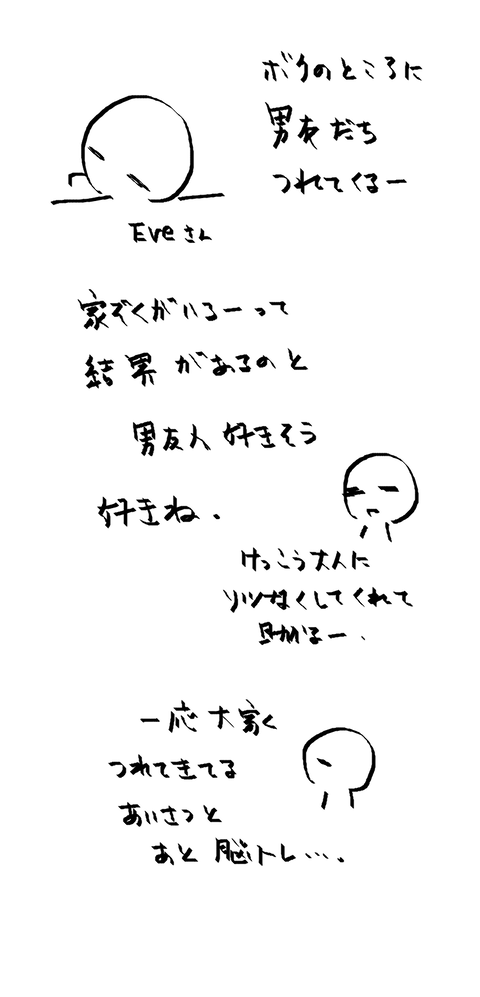 ボクのところに
男友だち
つれてくるー
Eveさん
家ぞくがいるーって
結界があるのと
男友人好きそう
好きね.
けっこう大人に
リツなくしてくれて
助かるー.
一応大家く
つれてきてる
あいさつと
あと脳トレ….